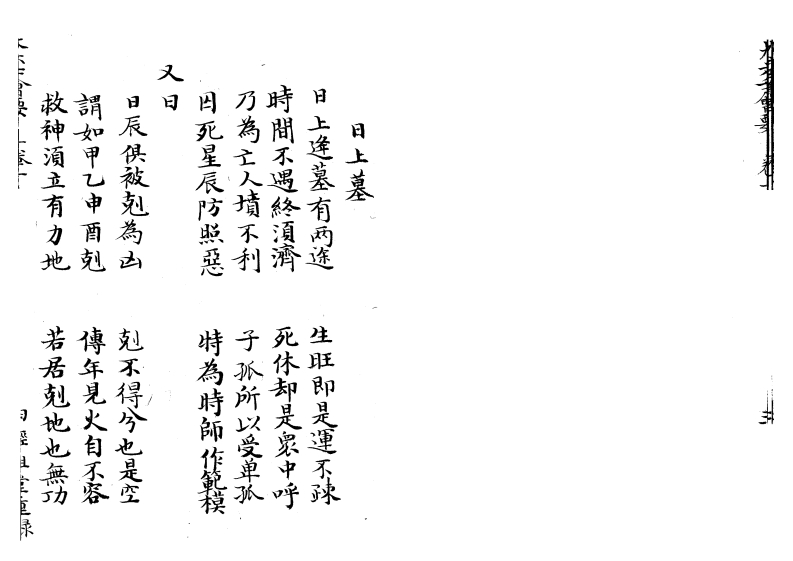 日上墓
日上逄墓有两途　生旺即是運不踈
時間不遇終須濟　死休却是衆中呼
乃為亡人墳不利　子孤所以受单孤
囚死星辰防照惡　特為時師作範模
又曰
日辰俱被剋為凶　剋不得兮也是空
謂如甲乙申酉剋　傳年見火自不容
救神須立有力地　若居剋地也無功